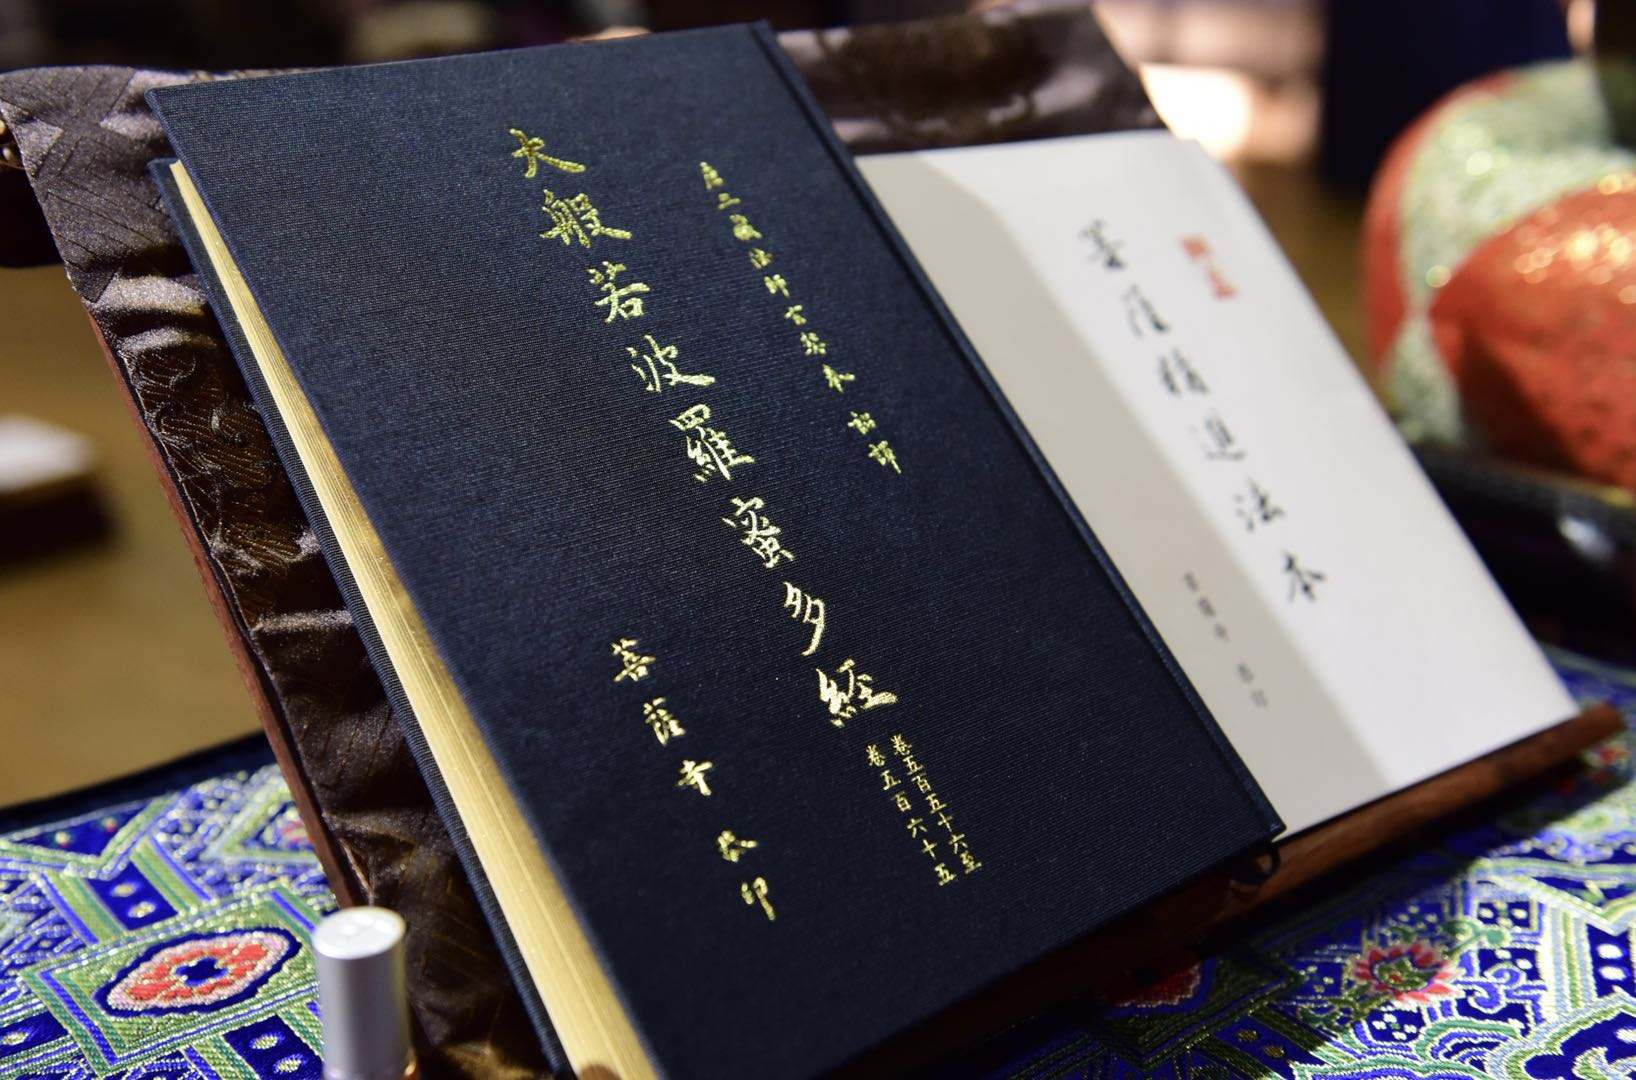 唐三藏法師玄奘奉 詔譯
大般若波羅蜜多經
卷五百五十六至
卷五百六十五
菩薩寺 敬印
菩薩精進法本
菩薩寺 恭印